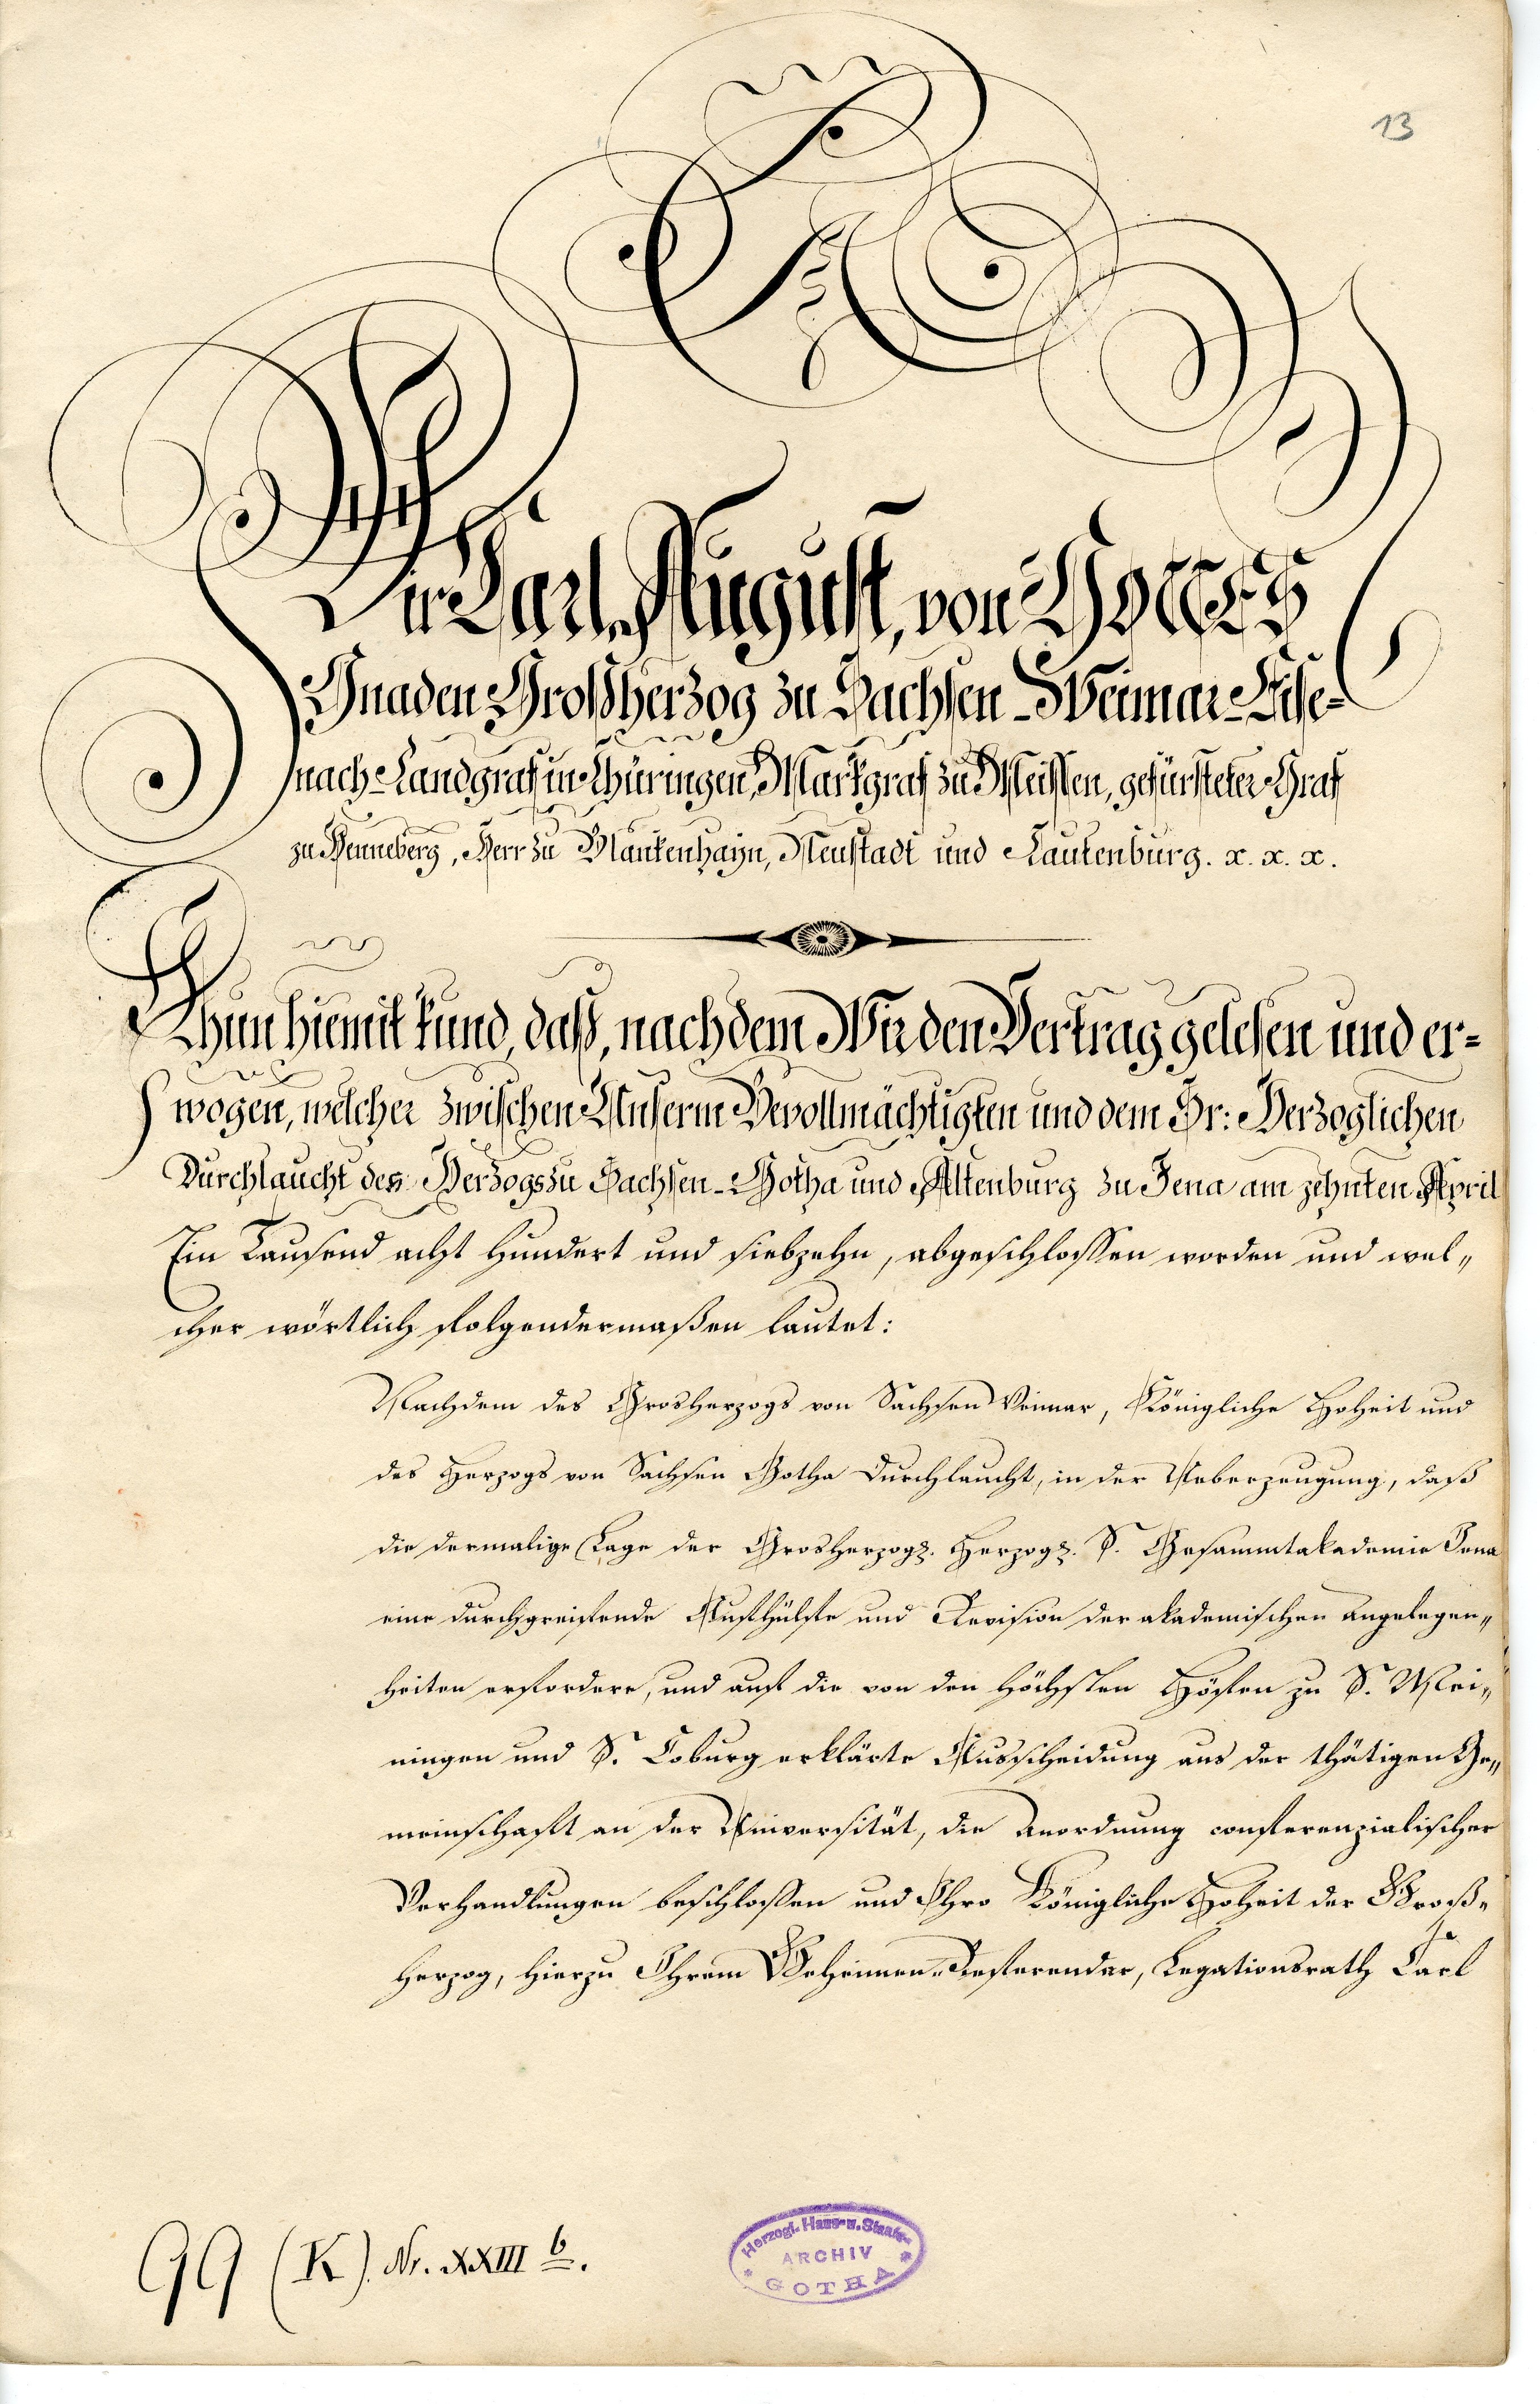 13
Wir Carl August, von GOTTES
Gnaden Großherzog zu Sachsen-Weimar-Eise-
nach Landgraf in Thüringen, Markgraf zu Meissen, gefürsteter Graf
zu Henneberg, Herr zu Blankenhayn, Neustadt und Tautenburg. x. x. x.
Thun hiemit kund, daß, nachdem Wir den Vertrag gelesen und er-
wogen, welcher zwischen Unserm Bevollmächtigten und dem Sr: Herzoglichen
Durchlaucht des Herzogs zu Sachsen-Gotha und Altenburg zu Jena am zehnten April
Ein Tausend acht hundert und siebzehn, abgeschlossen worden und wel-
cher wörtlich folgendermaßen lautet:
Nachdem des Grosherzogs von Sachsen Weimar, Königliche Hoheit und
des Herzogs von Sachsen Gotha Durchlaucht, in der Ueberzeugung, daß
die dermalige Lage der Grosherzogl. Herzogl. S. Gesammtakademie Jena
eine durchgreifende Aufhülfe und Revision der akademischen Angelegen-
heiten erfordere, und auf die von den höchsten Höfen zu S. Mei-
ningen und S. Coburg erklärte Ausscheidung aus der thätigen Ge-
meinschaft an der Universität, die Anordnung conferenzialischer
Verhandlungen beschlossen und Ihro Königliche Hoheit der Groß-
herzog, hierzu Ihrem Geheimen-Referendar, Legationsrath Carl
QQ (K). Nr. XXIII b.
Herzogl. Haus- u. Staats-
ARCHIV
* GOTHA *